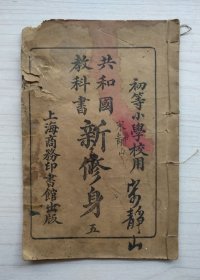 初等小學校用
共和國
教科書
新修身
五
上海商務印書館出版